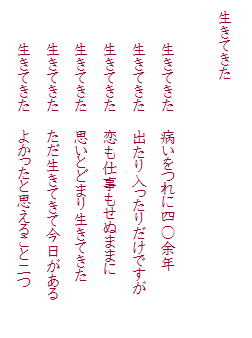 生きてきた
生きてきた 病いをつれに四〇余年
生きてきた 出たり入ったりだけですが
生きてきた 恋も仕事もせぬままに
生きてきた 思いとどまり生きてきた
生きてきた ただ生きてきて今日がある
生きてきた よかったと思えること二つ